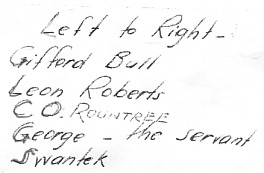 Left to Right -
Gifford Bull
Leon Roberts
C O. ROUNTREE
George - the servant
Swantek